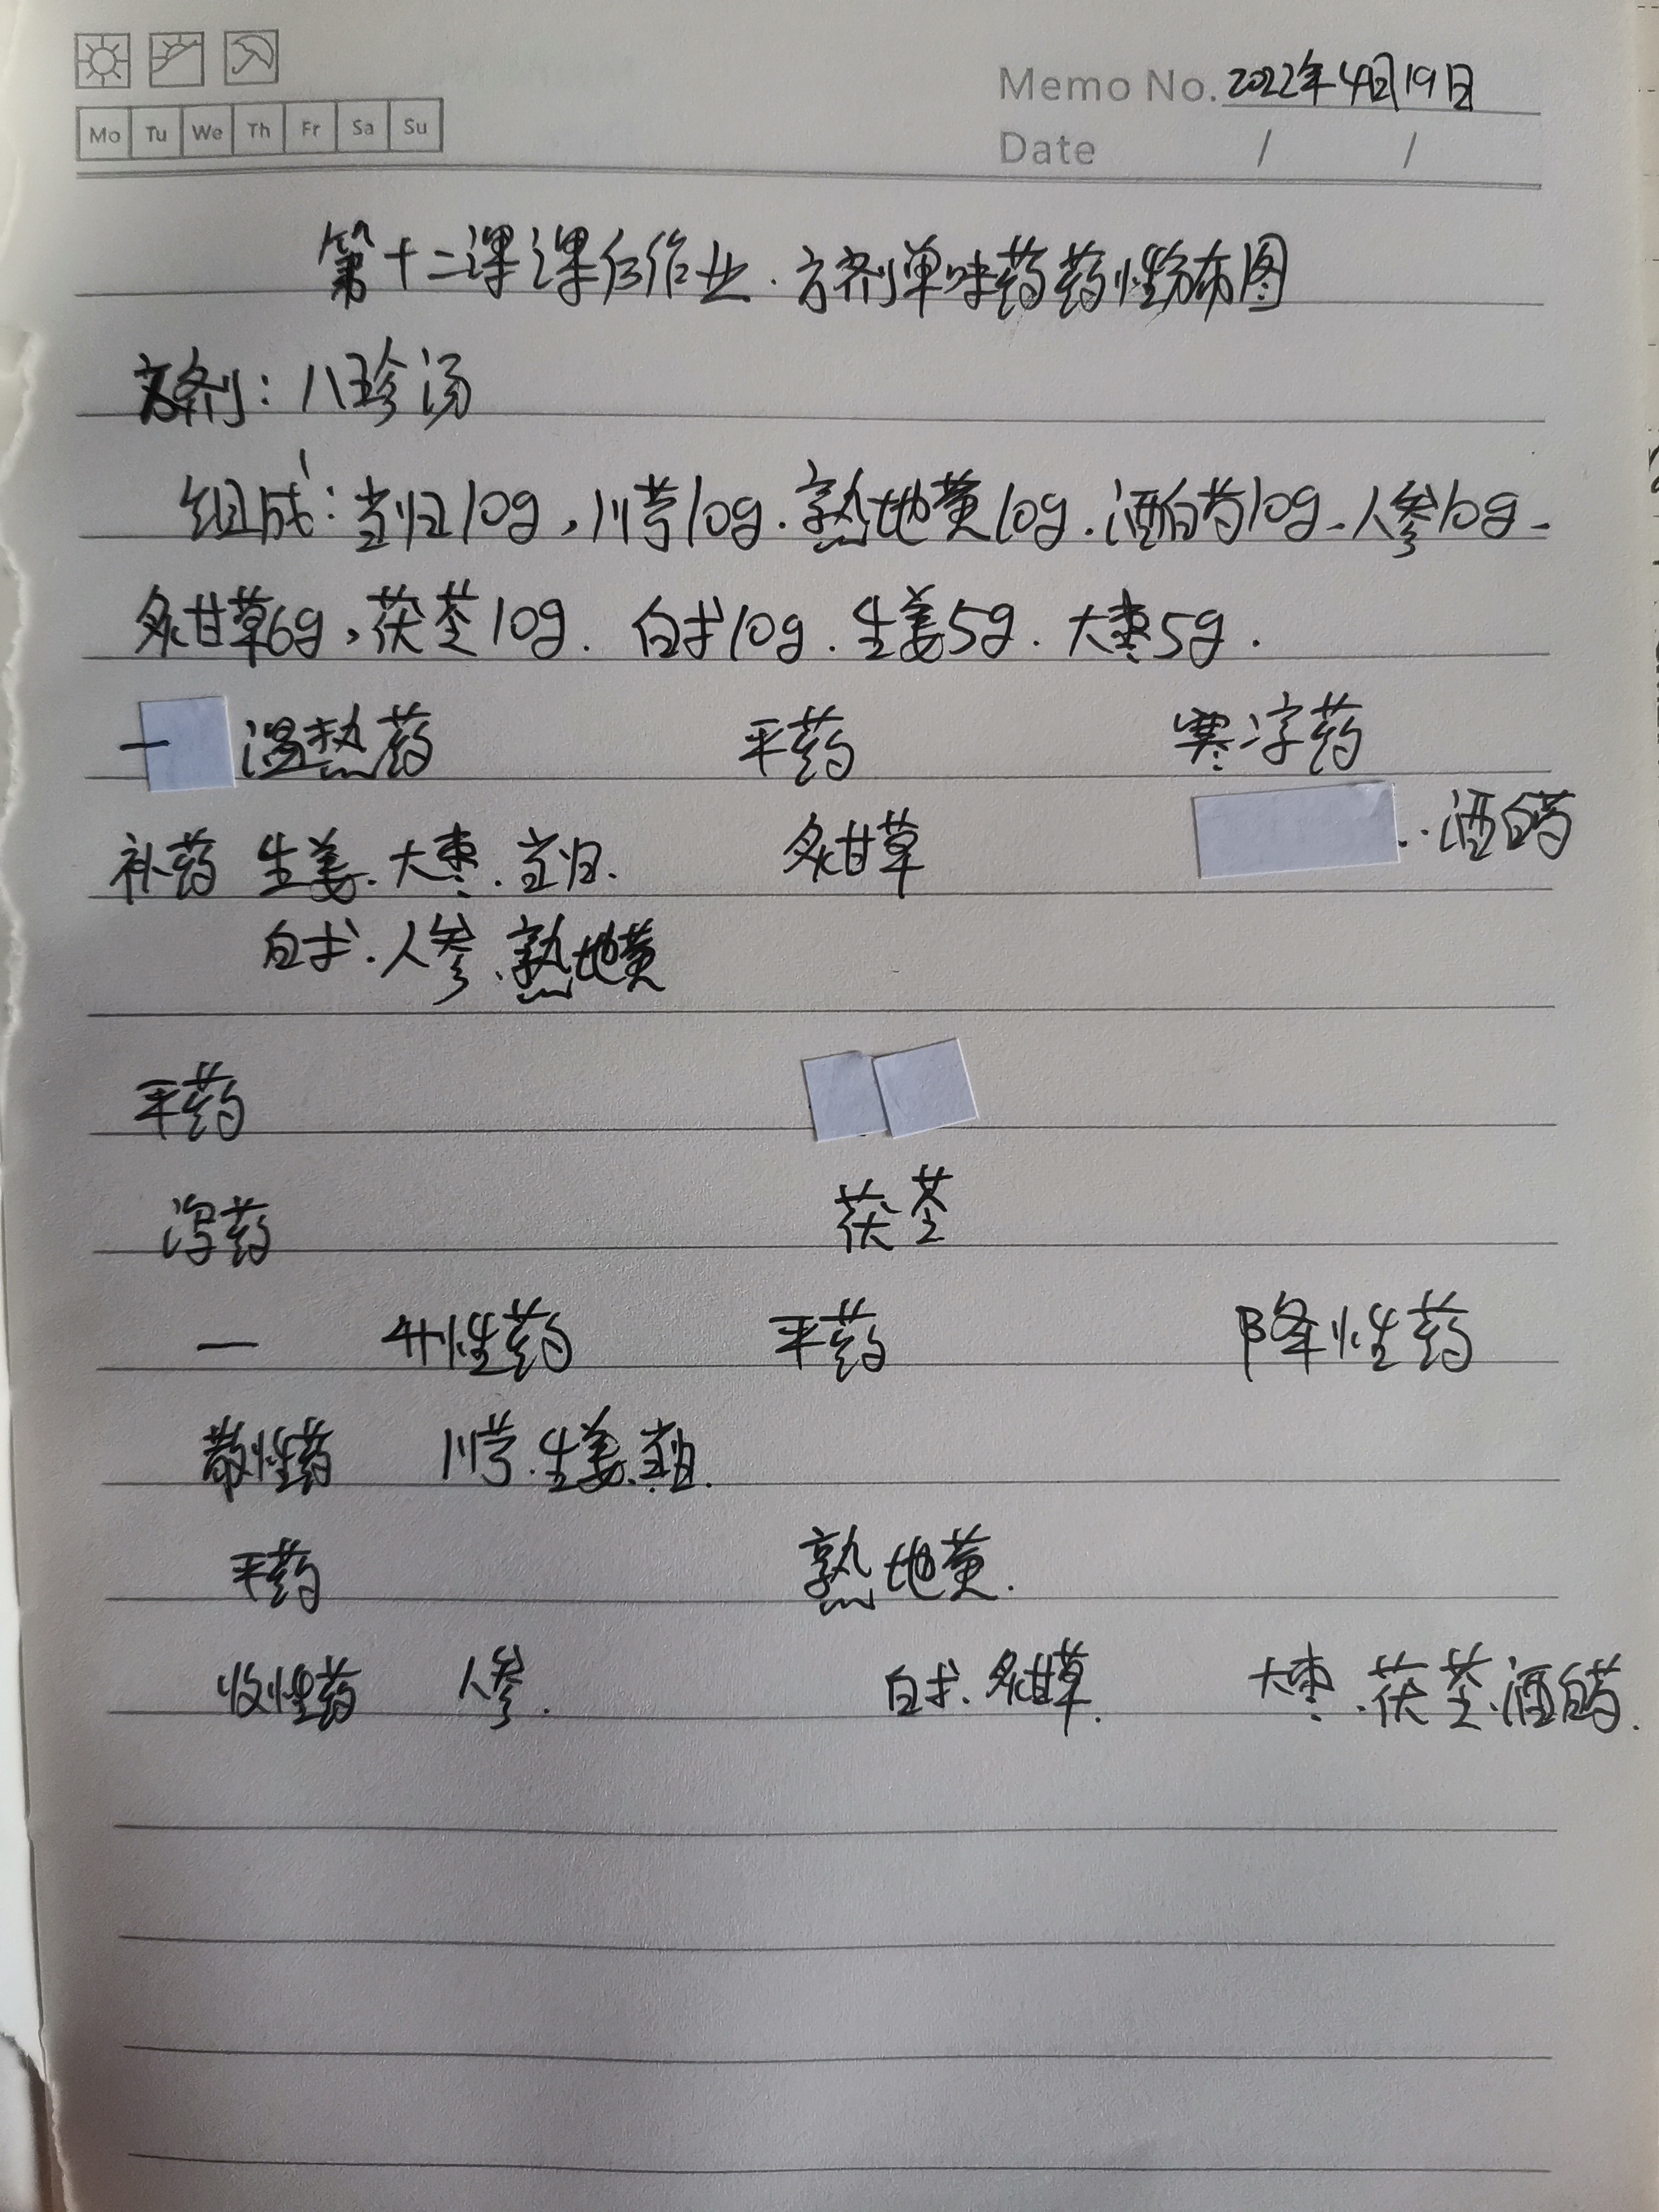 Mo Tu We Th Fr Sa Su
Memo No. 2022年4月19日
Date / /
第十二课课后作业.方剂单味药药性分布图
方剂:八珍汤
组成:当归10g,川芎10g.熟地黄10g.酒白芍10g.人参10g.
炙甘草6g,茯苓10g.白术10g.生姜5g.大枣5g.
一 温热药 平药 寒凉药
补药 生姜.大枣.当归. 炙甘草 .酒白芍
白术.人参.熟地黄
平药
泻药 茯苓
一 升性药 平药 降性药
散性药 川芎.生姜.当归.
平药 熟地黄.
收性药 人参. 白术.炙甘草. 大枣.茯苓.酒白芍.